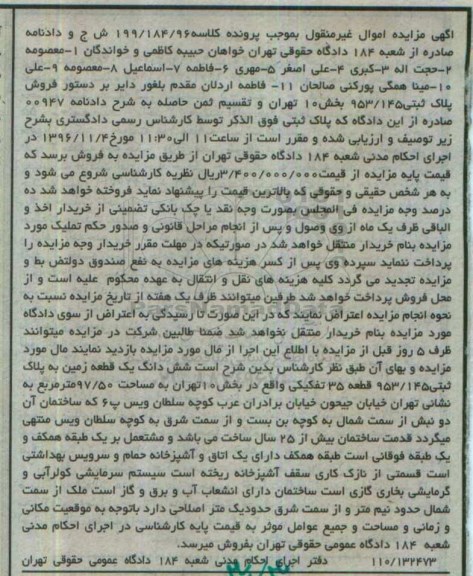 آگهی مزایده اموال غیرمنقول بموجب پرونده کلاسه ۱۹۹/۱۸۴/۹۶ ش ج و دادنامه
صادره از شعبه ۱۸۴ دادگاه حقوقی تهران خواهان حبیبه کاظمی و خواندگان ۱-معصومه
۲-حجت اله ۳-کبری ۴-علی اصغر ۵-مهری ۶-فاطمه ۷-اسماعیل ۸-معصومه ۹-علی
۱۰-مینا همگی پورکنی صالحان ۱۱- فاطمه اردلان مقدم بلغور دایر بر دستور فروش
پلاک ثبتی ۹۵۳/۱۴۵ بخش ۱۰ تهران و تقسیم ثمن حاصله به شرح دادنامه ۰۰۹۴۷
صادره از این دادگاه که پلاک ثبتی فوق الذکر توسط کارشناس رسمی دادگستری بشرح
زیر توصیف و ارزیابی شده و مقرر است از ساعت ۱۱ الی ۱۱:۳۰ مورخ ۱۳۹۶/۱۱/۴ در
اجرای احکام مدنی شعبه ۱۸۴ دادگاه حقوقی تهران از طریق مزایده به فروش برسد که
قیمت پایه مزایده از قیمت ۳/۴۰۰/۰۰۰/۰۰۰ ریال نظریه کارشناسی شروع می شود و
به هر شخص حقیقی و حقوقی که بالاترین قیمت را پیشنهاد نماید فروخته خواهد شد ده
درصد وجه مزایده فی المجلس بصورت وجه نقد یا چک بانکی تضمینی از خریدار اخذ و
الباقی ظرف یک ماه از وی وصول و پس از انجام مراحل قانونی و صدور حکم تملیک مورد
مزایده بنام خریدار منتقل خواهد شد در صورتیکه در مهلت مقرر خریدار وجه مزایده را
پرداخت ننماید سپرده وی پس از کسر هزینه های مزایده به نفع صندوق دولت ضبط و
مزایده تجدید می گردد کلیه هزینه های نقل و انتقال به عهده محکوم علیه است و از
محل فروش پرداخت خواهد شد طرفین میتوانند ظرف یک هفته از تاریخ مزایده نسبت به
نحوه انجام مزایده اعتراض نمایند که در این صورت تا رسیدگی به اعتراض از سوی دادگاه
مورد مزایده بنام خریدار منتقل نخواهد شد ضمنا طالبین شرکت در مزایده میتوانند
ظرف ۵ روز قبل از مزایده با اطلاع این اجرا از مال مورد مزایده بازدید نمایند مال مورد
مزایده و بهای آن طبق نظر کارشناس بدین شرح است شش دانگ یک قطعه زمین به پلاک
ثبتی ۹۵۳/۱۴۵ قطعه ۳۵ تفکیکی واقع در بخش ۱۰ تهران به مساحت ۹۷/۵۰ مترمربع به
نشانی تهران خیابان جیحون خیابان برادران عرب کوچه سلطان ویس پ ۶ که ساختمان آن
دو نبش از سمت شمال به کوچه بن بست و از سمت شرق به کوچه سلطان ویس منتهی
میگردد قدمت ساختمان بیش از ۲۵ سال ساخت می باشد و مشتمعل بر یک طبقه همکف و
یک طبقه فوقانی است طبقه همکف دارای یک اتاق و آشپزخانه حمام و سرویس بهداشتی
است قسمتی از نازک کاری سقف آشپزخانه ریخته است سیستم سرمایشی کولرآبی و
گرمایشی بخاری گازی است ساختمان دارای انشعاب آب و برق و گاز است ملک از سمت
شمال حدود نیم متر و از سمت شرق حدودیک متر اصلاحی دارد باتوجه به موقعیت مکانی
و زمانی و مساحت و جمیع عوامل موثر به قیمت پایه کارشناسی در اجرای احکام مدنی
شعبه ۱۸۴ دادگاه عمومی حقوقی تهران بفروش میرسد.
۱۱۰/۱۳۲۴۷۳ دفتر اجرای احکام مدنی شعبه ۱۸۴ دادگاه عمومی حقوقی تهران